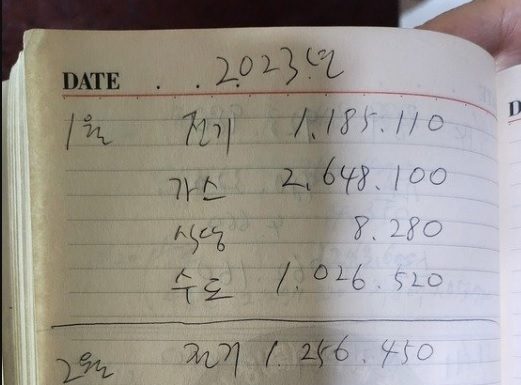 DATE . . . 2023년
1월 전기 1.185.110
가스 2.648.100
식당 8.280
수도 1.026.520
2월 전기 1.256.450